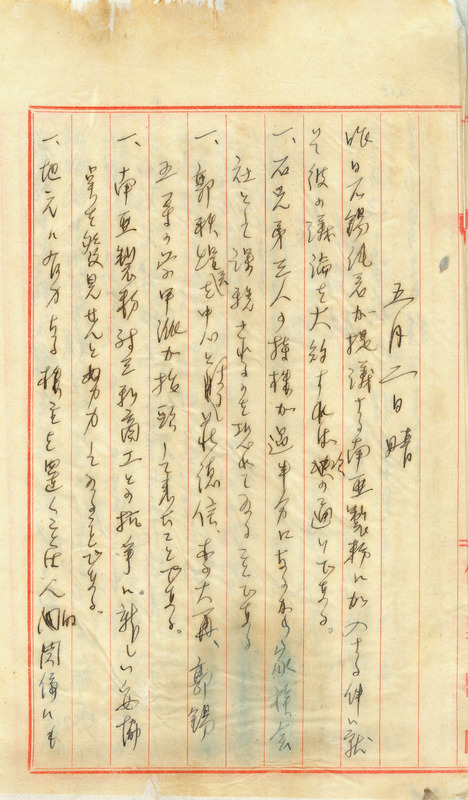 五月二日 晴
昨日石錫純君が提議する南亜製粉に加入する件に就
て彼の議論を大約すれば次の通りである。
一、石兄弟三人の持株が過半分にあるから家族会
社として課税されるのを恐れてゐることである
一、郭秋煌を中心とし荘徳信、李大再、郭錫
五 等の学甲派が抬頭して来たことである。
一、南亜製粉対三新商工との抗争に新しい妥協
点を発見せんと努力してゐることである。
一、地元に有力なる株主を置くことは人的関係にも